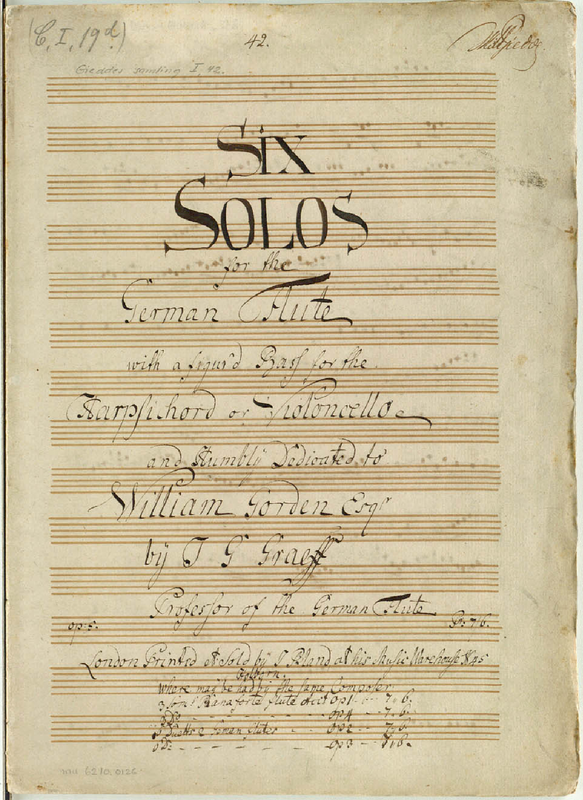 (C, I, 19d.)
42.
Giedde's samling I, 42.
SIX
SOLOS
for the
German Flute
with a figur'd Bass for the
Harpsichord or Violoncello
and Humbly Dedicated to
William Gorden Esqr
by J G Graeff
Professor of the German Flute
op: 5. Pr 7/6.
London Printed & Sold by J. Bland at his Music Warehouse No 45
Holborn
where may be had by the same Composer
Pianaforte Flute op 1 - - 7. 6.
Do - - - op 4 - - 7. 6.
Duetts 2 German flutes - - - op 2 - - 7. 6
Do - - - op 3
MH 6210.0126